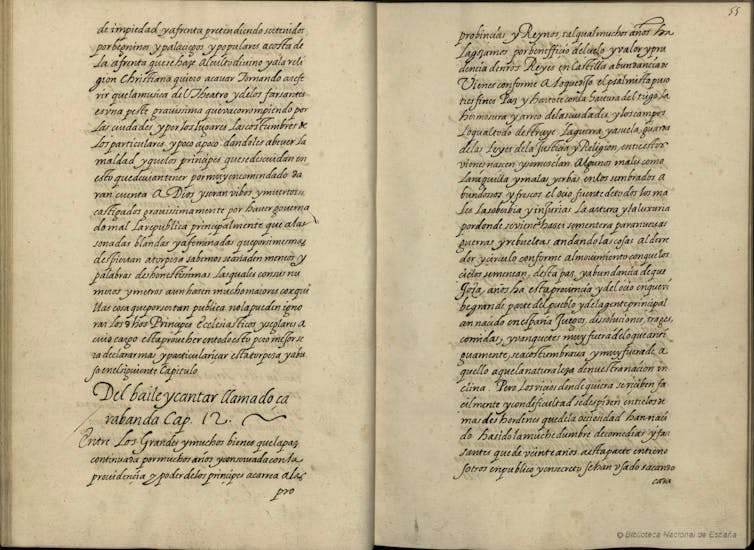 de impiedad y afrenta pretendiendo ser tenidos
por beninos y palacigos y populares acosta de
la afrenta que se haze Al culto divino y a la reli
gion Christiana quiero acavar Tornando a refe
rir que la musica del Theatro y de los farsantes
es una peste gravissima que va corrompiendo por
las ciudades y por los lugares las costumbres de
los particulares y poco apoco dandoles a bever la
maldad y que los principes que se descuidan en
esto que devian tener por muy encomindado da
ran cuenta A Dios y seran vibos y muertos
castigados gravissimamente por haver governa
do mal la republica principalmente que a las
sonadas blandas y afeminadas que por si mismas
despiertan a torpeza sabemos se añaden meneos y
palabras deshonestissimas las quales con sus nu
meros y metros aun haren mucho maiores
cosa que por ser tan publica no la pueden igno
rar los dhos Principes Ecclesiasticos y seglares a
cuio cargo esta proveher en todo esto pero mejor se
declarar mas y particulariçar esta torpeza y abu
so en el siguiente Capitulo
Del baile y cantar llamado ça
rabanda Cap. 12.
Entre los Grandes y muchos bienes que la paz
continuada por muchos años y conservada con la
providencia y poder de los principes acarrea a las
pro
55
probincias y Reynos, tal qual muchos años ha
la gozamos por beneffiçio del cielo y valor y pru
dencia de nros Reyes en Castilla abundancia de
Vienes conforme A lo que dijo el psalmista puso
tus fines Paz y harto te con la hartura del trigo. la
hermosura y arreo de las ciudades y los campos
lo qual todo destruye la guerra y asuela, guarda
de las Leyes de la justicia y Religion, entre estos
vienes nascen y se mezclan Algunos males como
la neguilla y malas yerbas en los sembrados a
bundosos y frescos el ocio fuente de todos los ma
les la sobervia y injurias la artura y la luxuria
por donde se viene hacer sementera para nuevas
guerras y rebueltas andando las cosas al derre
dor y circulo conforme al movimiento con que los
cielos se menean, desta paz y abundancia de que
Goza, años ha esta provincia y del ocio en que vi
be grande parte del pueblo y de la gente principal
an nacido en españa Juegos, dissoluciones, trages,
comidas, y vanquetes muy fuera de lo que anti
guamente, se acostumbrava y muy fuera de a
quello a que la naturaleza de nuestra nacion in
clina. Pero los vicios donde quiera se reciben fa
cilmente y con deficultad se despiden entre los de
mas deshordenes que de la ociosidad han naci
do ha sido la muchedumbre de comedias y far
santes que de veinte años a esta parte entre no
sotros en publico y en secreto se han usado sacando
cada
© Biblioteca Nacional de España